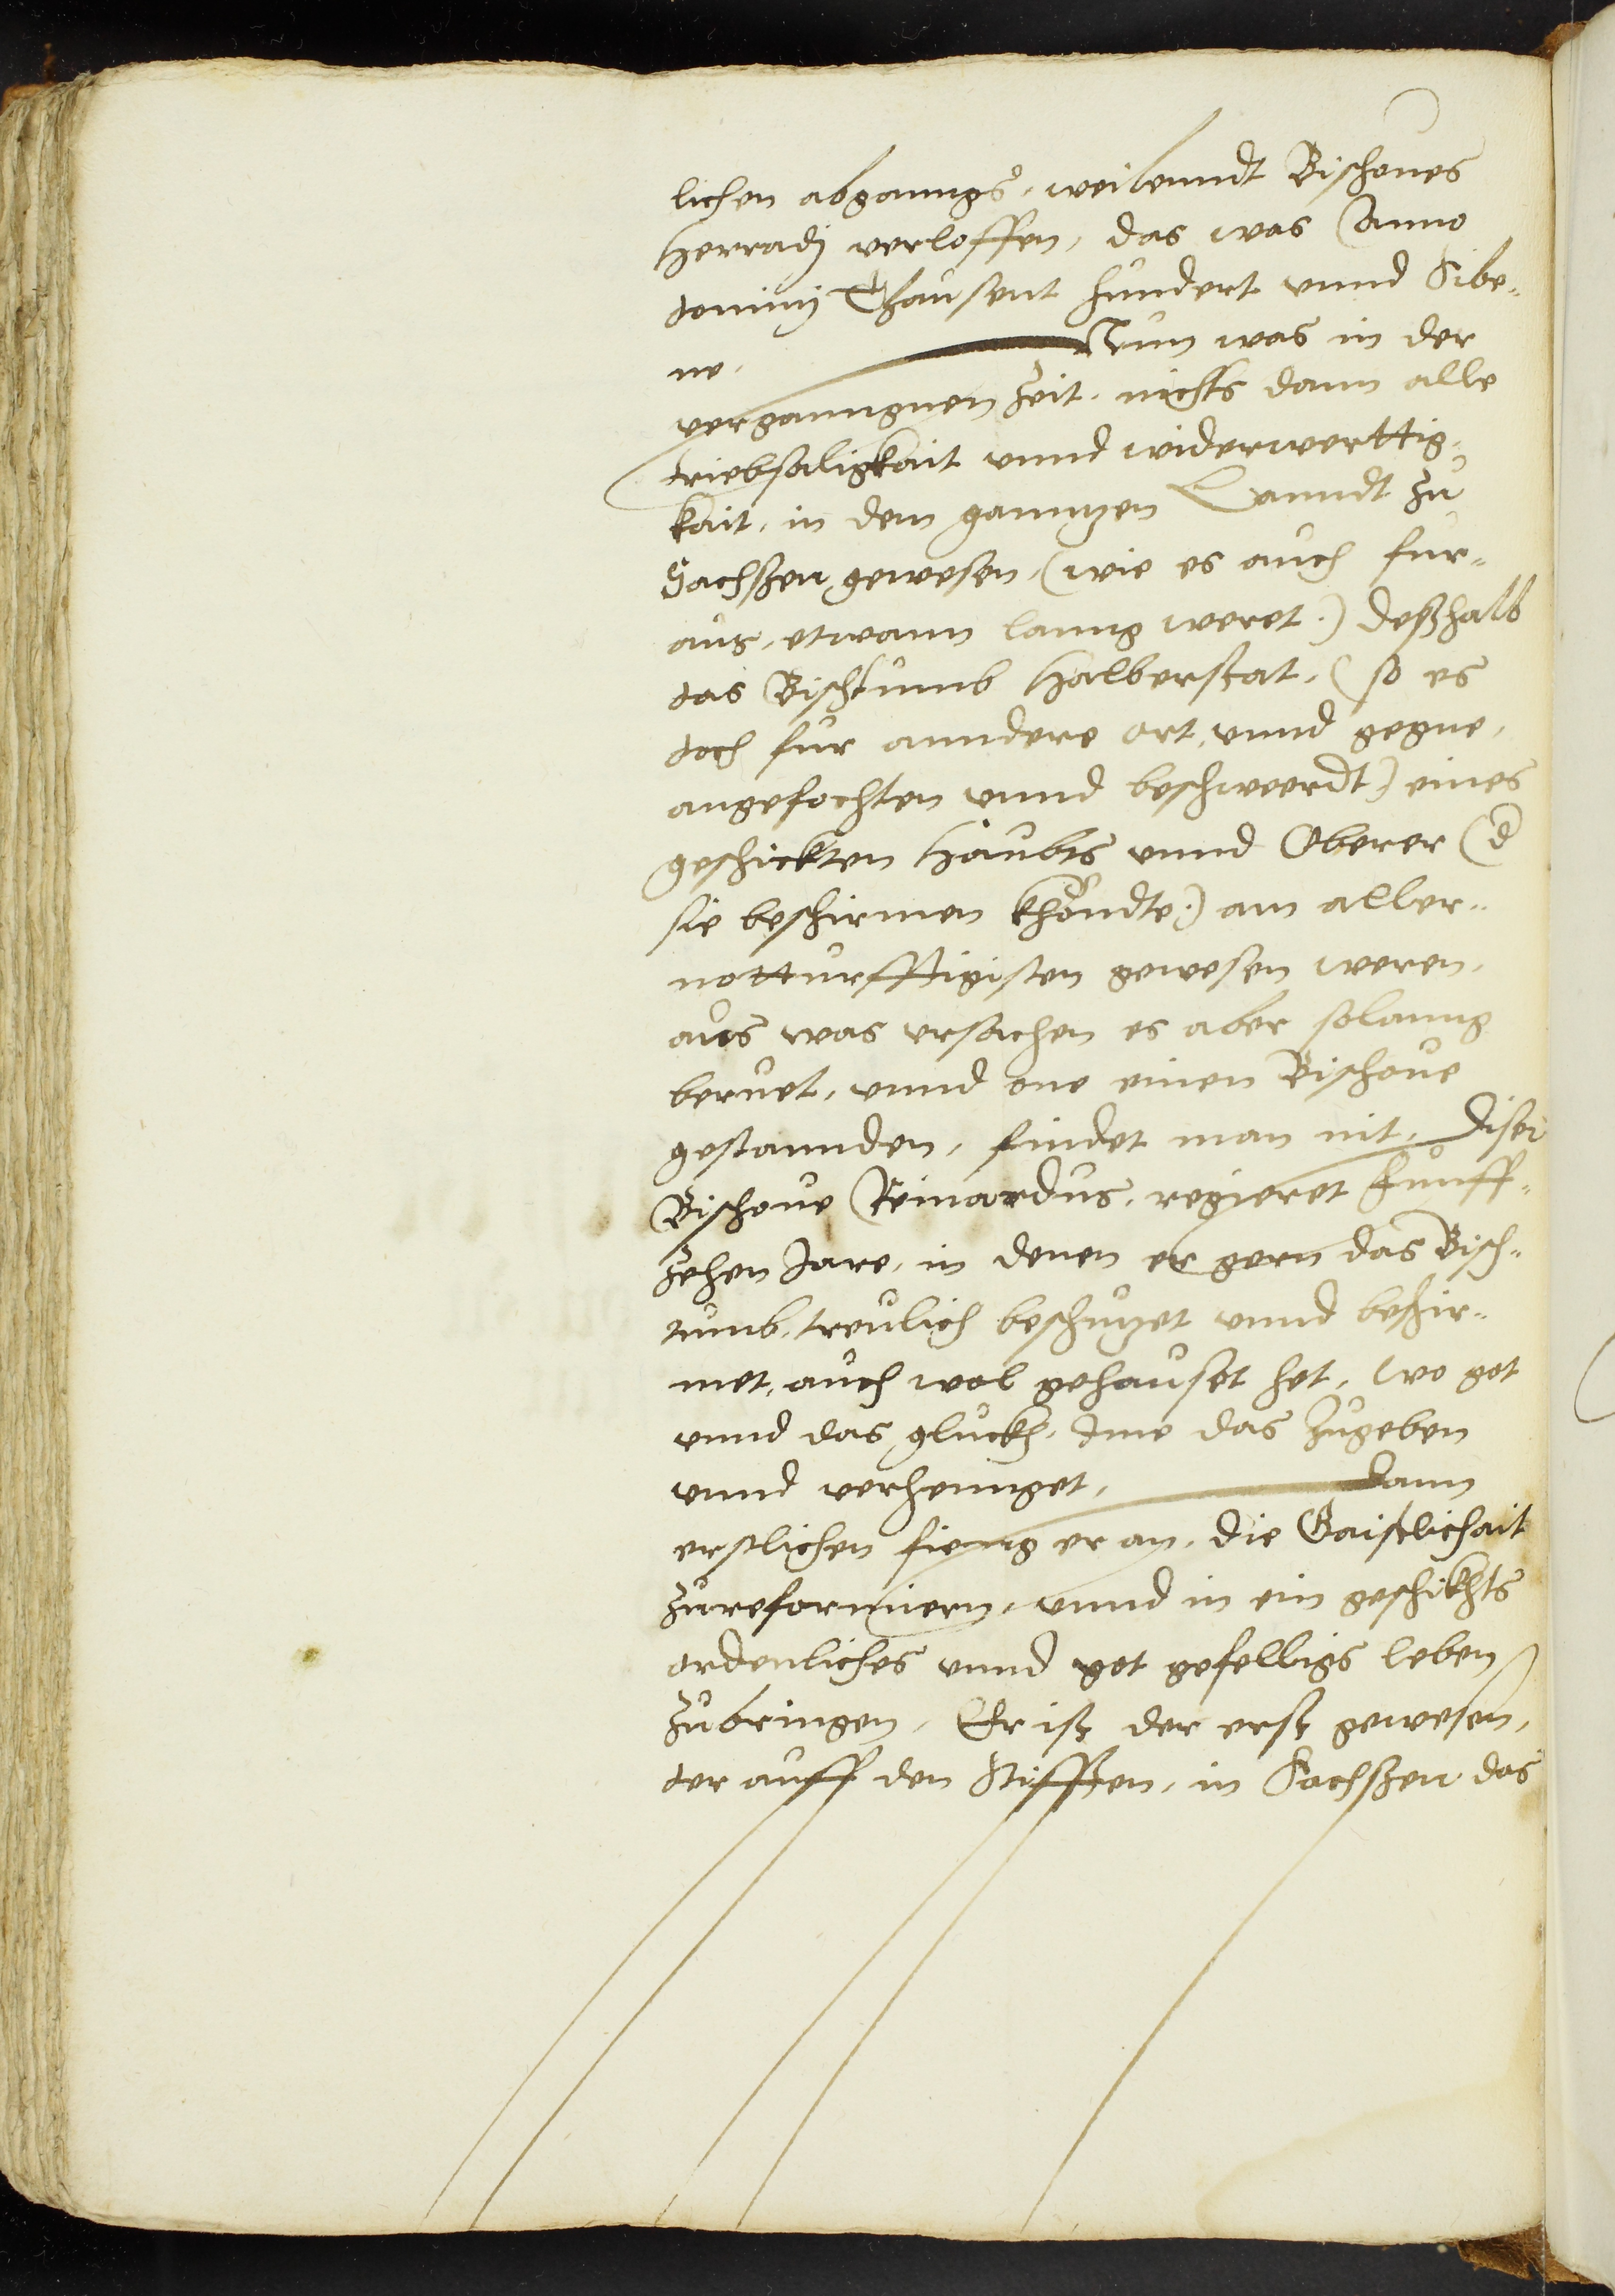 lichen abganngs, weilenndt Bischoues
Herradj verloffen, das was Anno
dominj Thausent hundert vnnd Sibe-
ne, Nun was in der
verganngnen Zeit, nichts dann alle
triebsaligkait vnnd widerwerttig-
kait, in dem ganntzen Lanndt zu
Sachsßen gewesen, (wie es auch fur-
aus, etwann lanng weret.) deßhalb
das Bischtumb Halberstat, (so es
doch fur anndere ort, vnnd gegne,
angefochten vnnd beschweerdt) eines
geschickten Haubts vnnd Oberer (d
sie beschirmen khöndte.) am aller-
notturfftigisten gewesen weren,
aus was vrsachen es aber solanng
beruet, vnnd one einen Bischoue
gestannden, findet man nit, Diser
Bischoue Reinardus, regieret Funff-
zehen Jare, in denen er gern das Bisch-
tumb, treulich beschutzet vnnd beschir-
met, auch wol gehauset het, wo got
vnnd das gluckh, Ime das zugeben
vnnd verhennget, Dann
erstlichen fieng er an, die Gaistlichait
zureformiern, vnnd in ein geschikhts
ordenliches vnnd got gefelligs leben
zubringen, Er ist der erst gewesen,
der auff den Stifften, in Sachsßen das